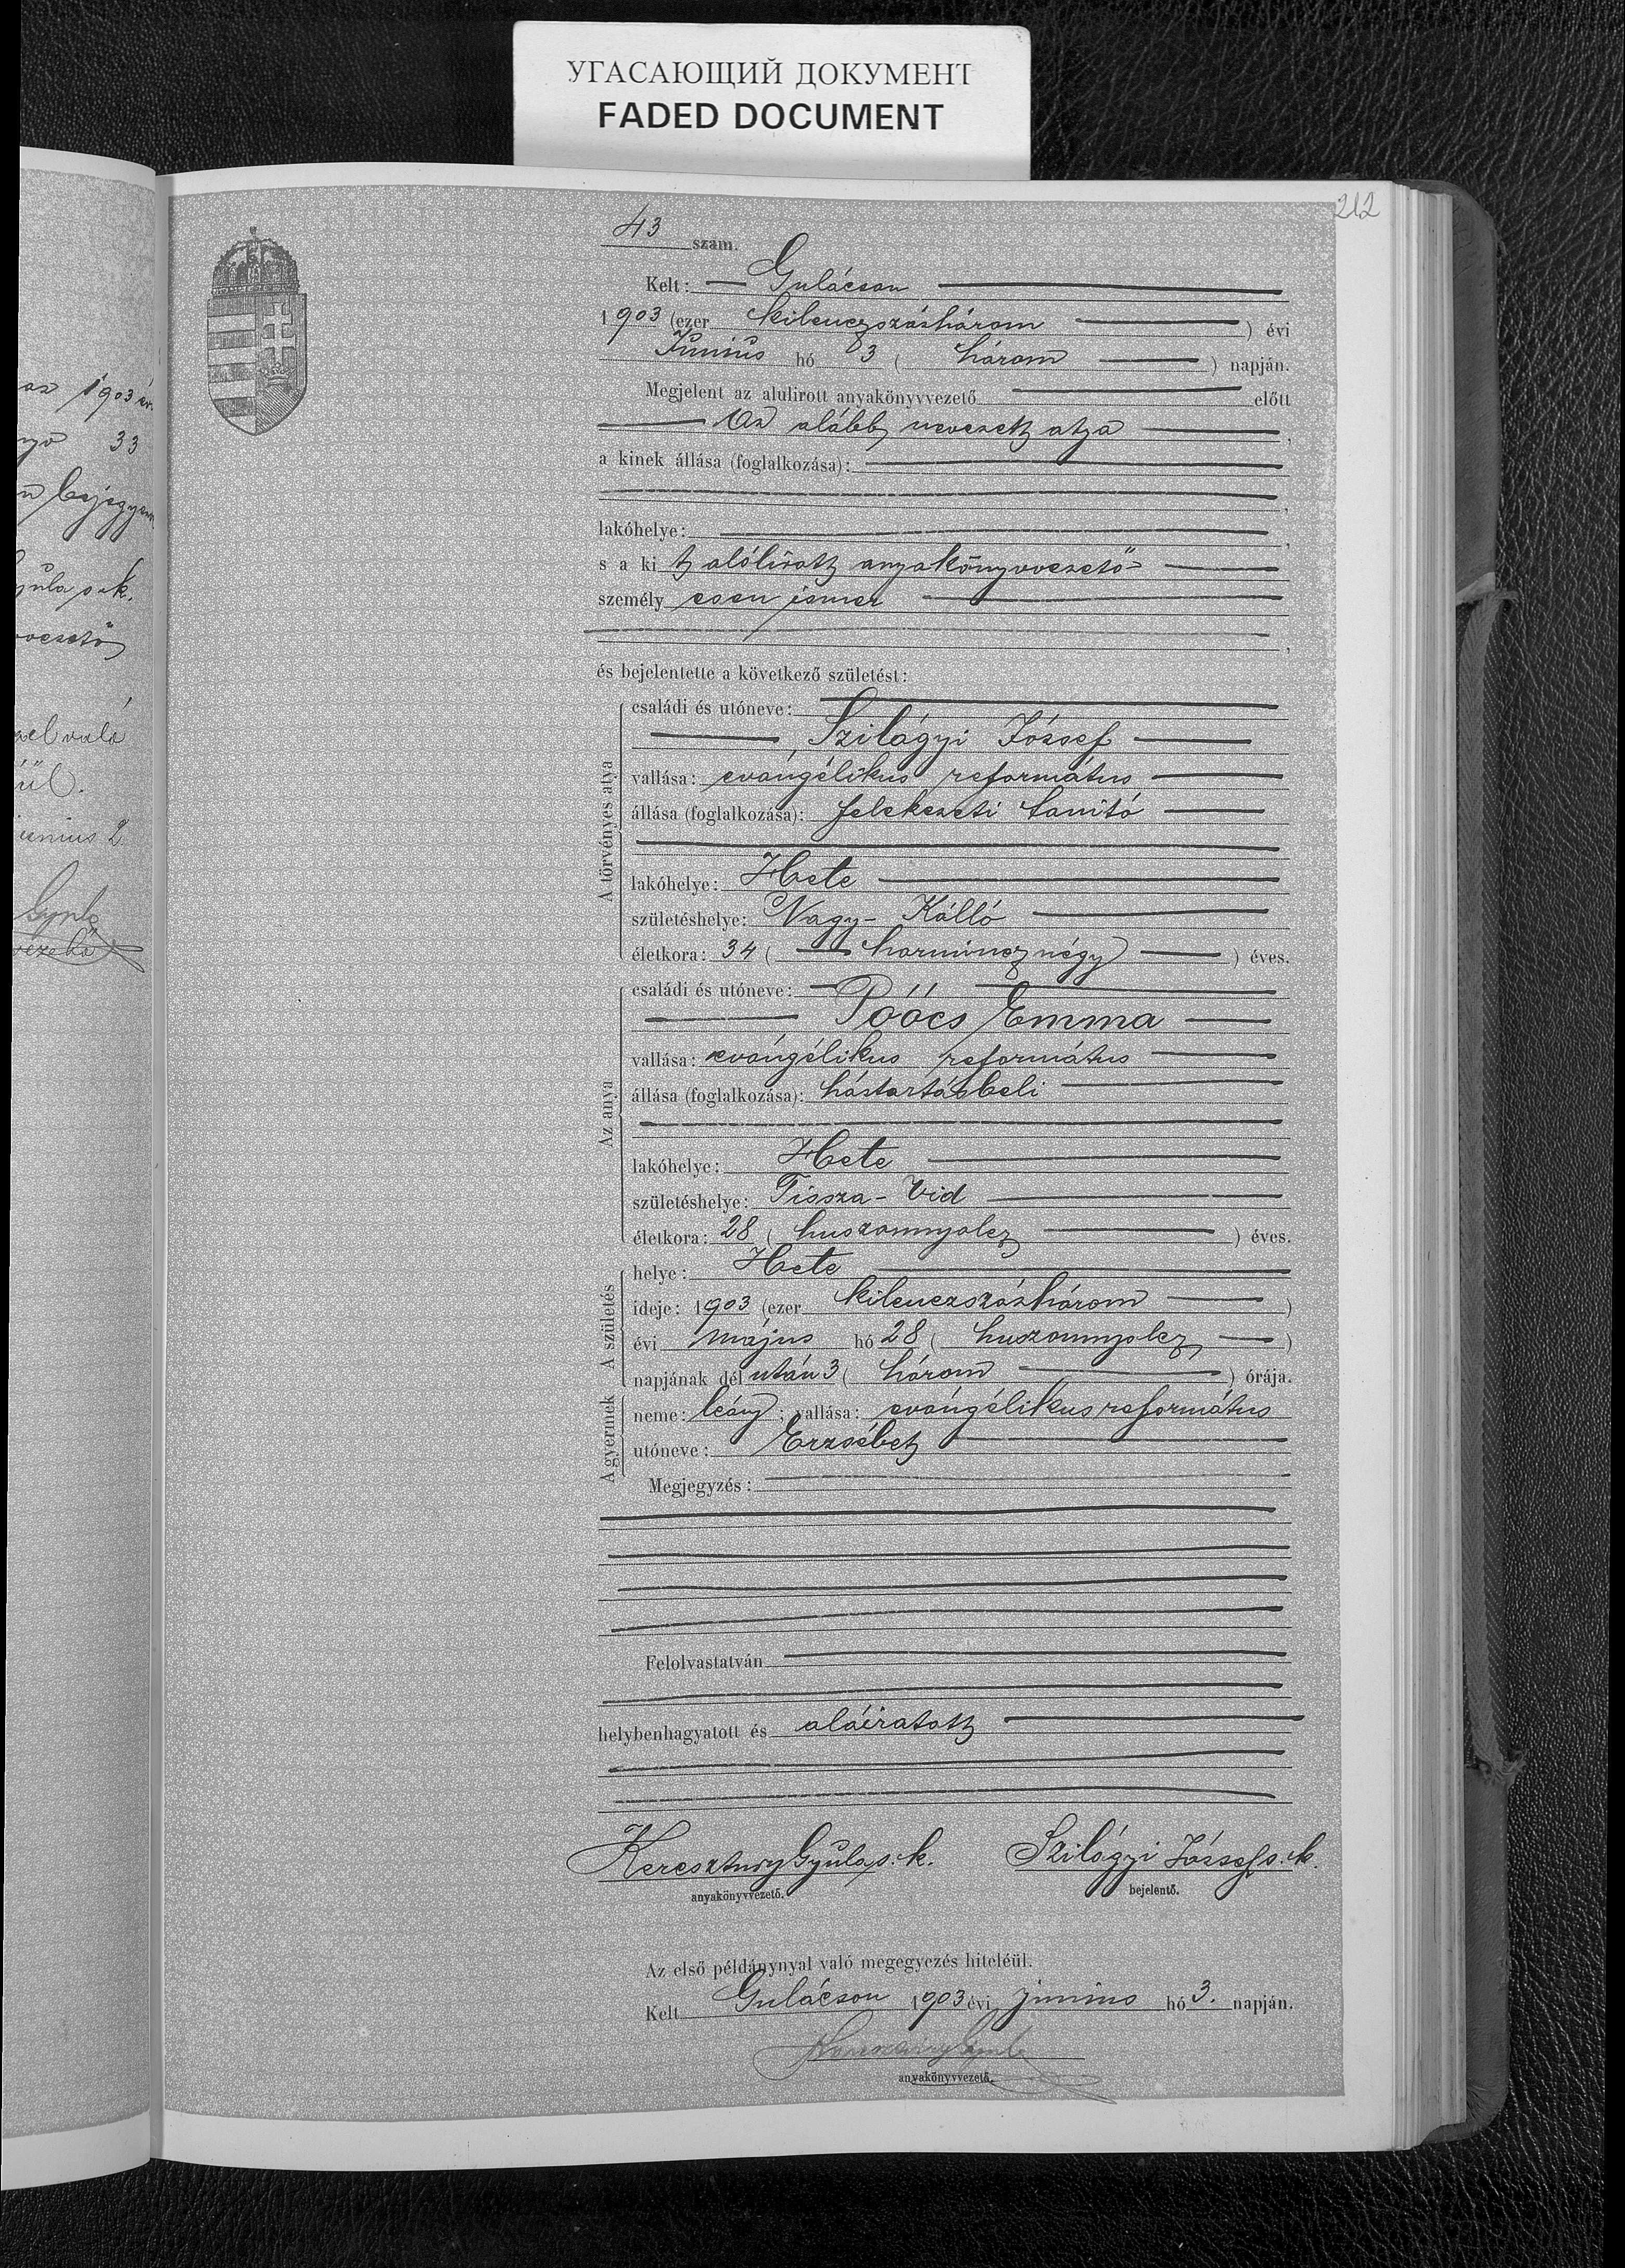 УГАСАЮЩИЙ ДОКУМЕНТ
FADED DOCUMENT
212
az 1903 év
33
bejegyz
Gyula s. k.
vezető
való
ül.
junius 2
43 szám.
Kelt: Gulácson
1903 (ezer kilenczszázhárom) évi
Junius hó 3 (három) napján.
Megjelent az alulirott anyakönyvvezető előtt
Az alább nevezett atya,
a kinek állása (foglalkozása):
lakóhelye:
s a kit alólirott anyakönyvvezető
személyesen ismer
és bejelentette a következő születést:
A törvényes atya
családi és utóneve:
Szilágyi József
vallása: evangélikus református
állása (foglalkozása): felekezeti tanitó
lakóhelye: Hete
születéshelye: Nagy-Kálló
életkora: 34 (harmincznégy) éves.
Az anya
családi és utóneve:
Póócs Emma
vallása: evangélikus református
állása (foglalkozása): háztartásbeli
lakóhelye: Hete
születéshelye: Tissza-Vid
életkora: 28 (huszonnyolcz) éves.
A születés
helye: Hete
ideje: 1903 (ezer kilenczszázhárom)
évi május hó 28 (huszonnyolcz)
napjának dél után 3 (három) órája.
A gyermek
neme: leány; vallása: evangélikus református
utóneve: Erzsébet
Megjegyzés:
Felolvastatván
helybenhagyatott és aláiratott
Keresztury Gyula s. k. Szilágyi József s. k.
anyakönyvvezető. bejelentő.
Az első példánynyal való megegyezés hiteléül.
Kelt Gulácson 1903 évi junius hó 3. napján.
Keresztury Gyula
anyakönyvvezető.